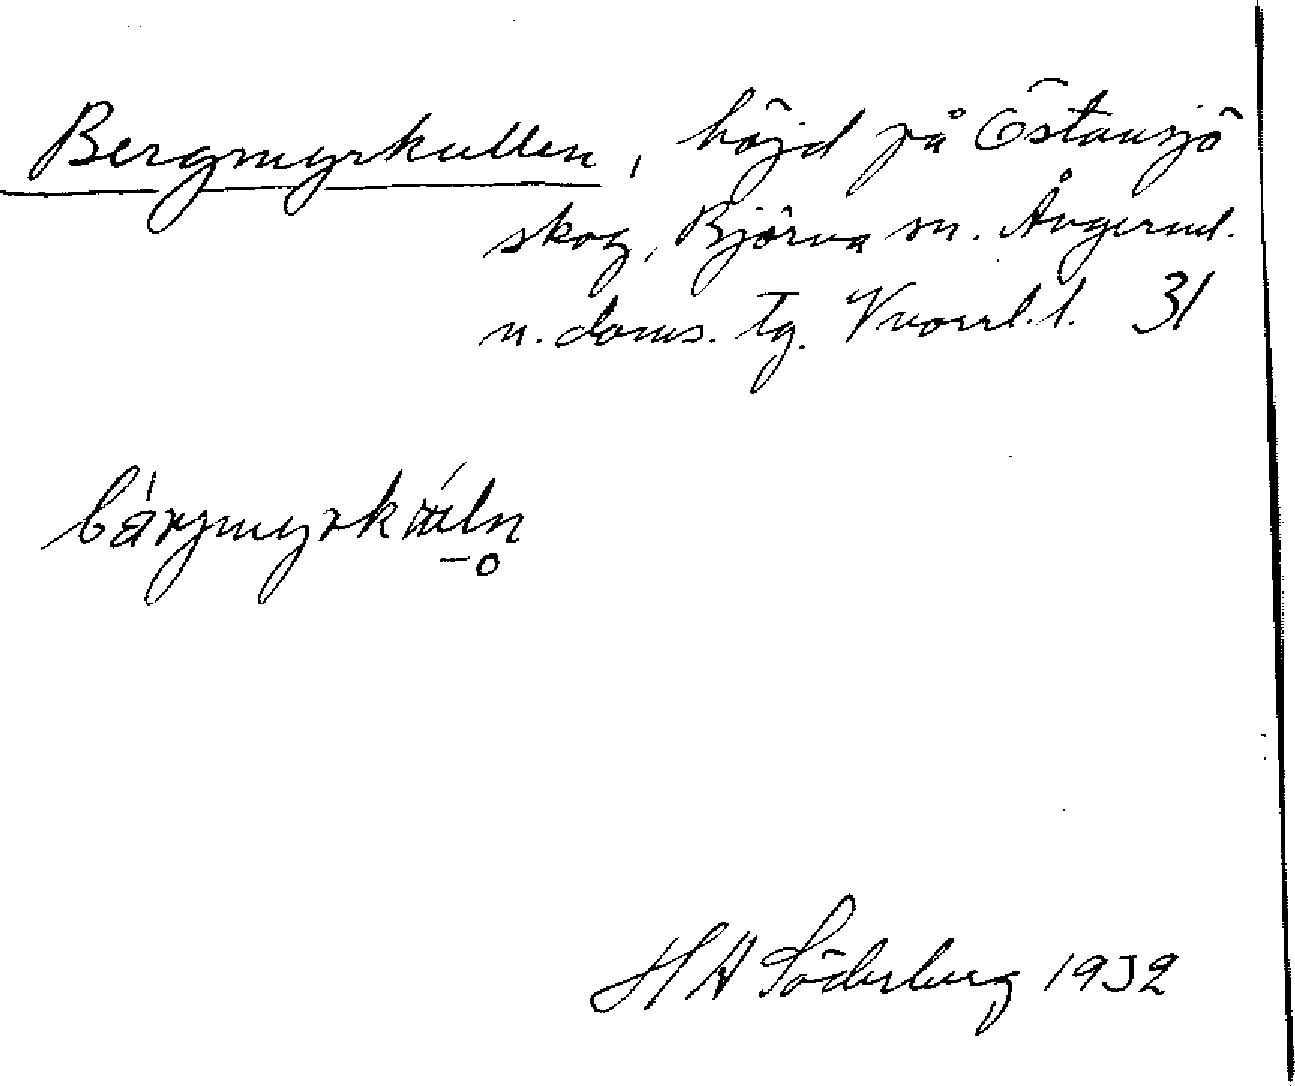 Bergmyrkullen, höjd på Östansjö
skog, Björna sn. Ångerml.
n. doms. tg. Vnorrl. l. 31
bärjmyrkuln
H A Söderberg 1932